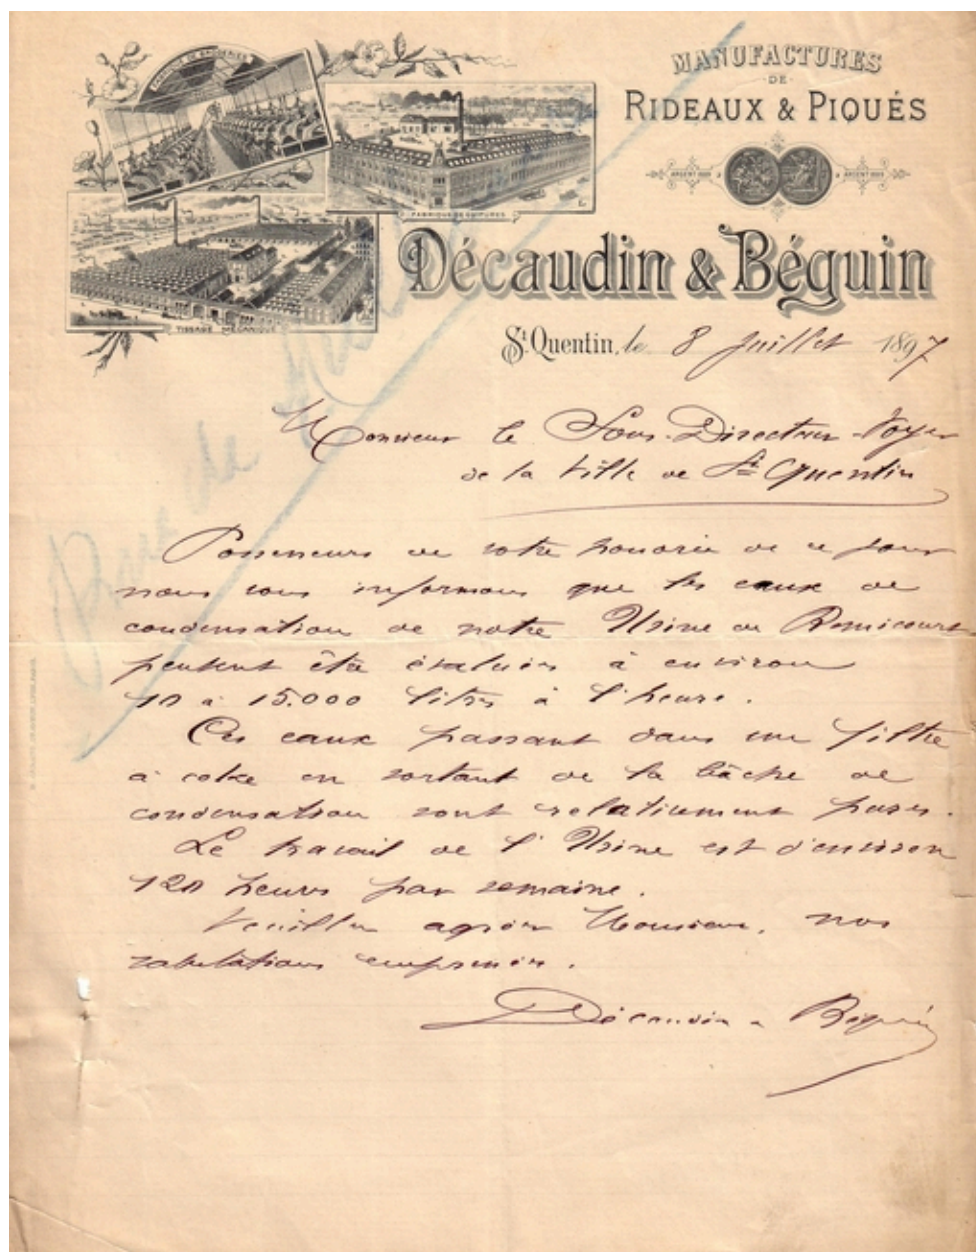 FABRIQUE DE BRODERIES
FABRIQUE DE GUIPURES
TISSAGE MÉCANIQUE
MANUFACTURES
DE
RIDEAUX & PIQUÉS
ARGENT 1889 ARGENT 1889
Décaudin & Béguin
St Quentin, le 8 Juillet 1897
Rue de
Monsieur le Sous-Directeur-Voyer
de la Ville de St Quentin
Possesseurs de votre honorée de ce jour
nous vous informons que les eaux de
condensation de notre Usine de Remicourt
peuvent être évaluées à environ
10 à 15.000 litres à l'heure.
Ces eaux passant dans un filtre
à coke en sortant de la bâche de
condensation sont relativement pures.
Le travail de l'Usine est d'environ
120 heures par semaine.
Veuillez agréer Monsieur, nos
salutations empressées.
Décaudin & Béguin